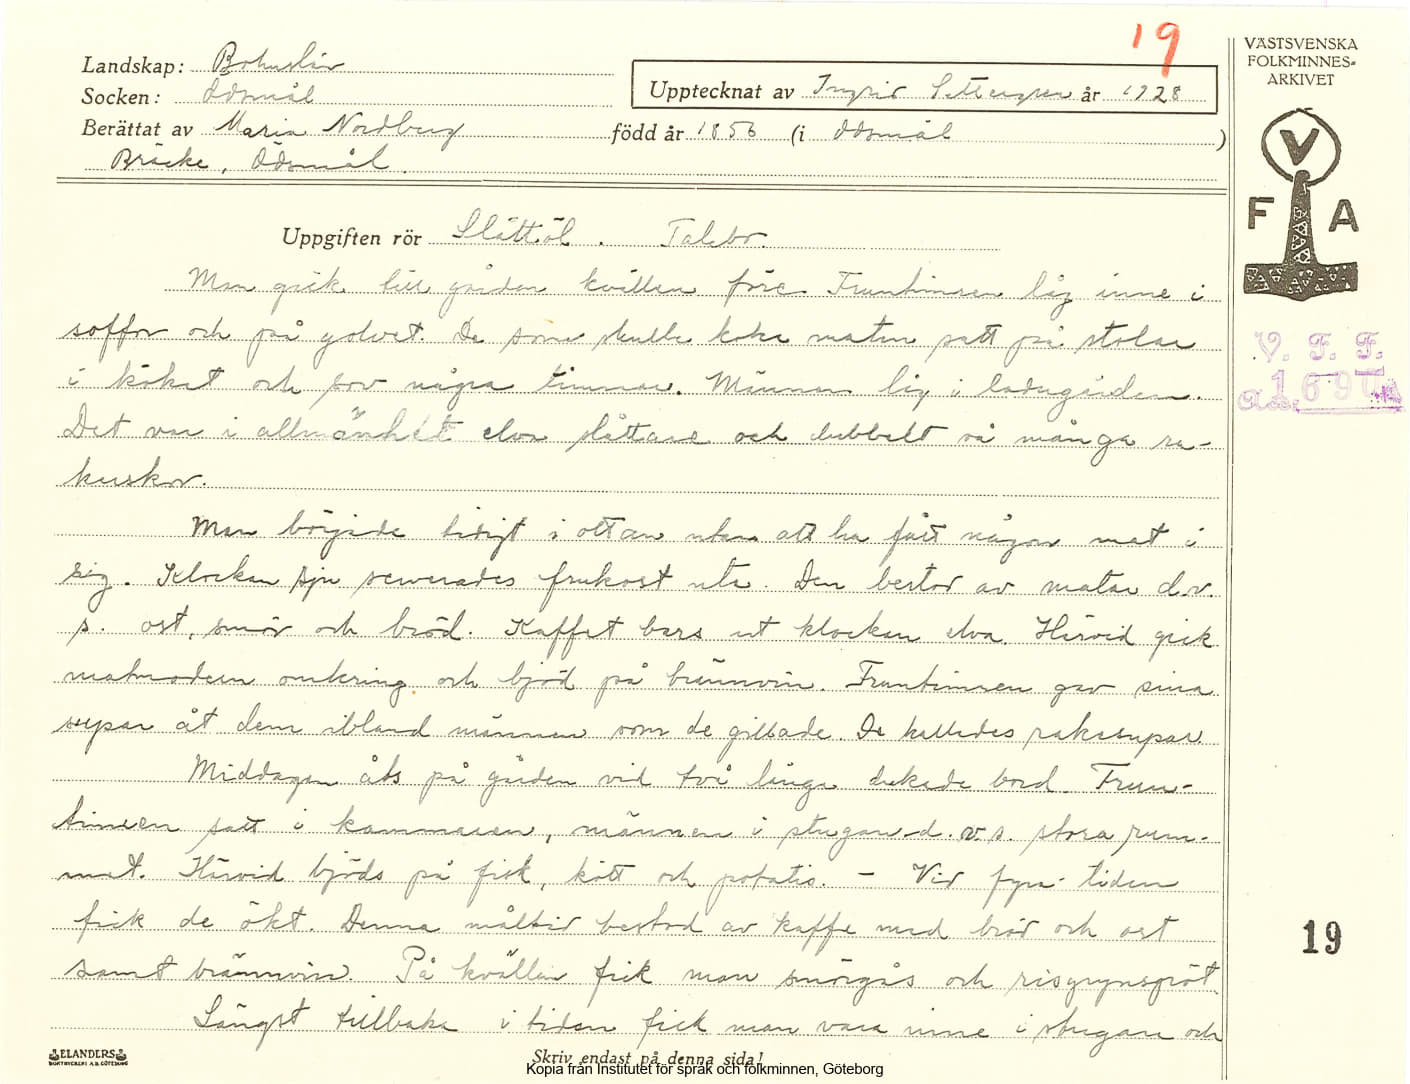 19
VÄSTSVENSKA
FOLKMINNES-
ARKIVET
Landskap: Bohuslän
Socken: Ödsmål
Upptecknat av Ingrid år 1928
Berättat av Maria Nordberg född år 1856 (i Ödsmål)
Bräcke, Ödsmål.
V
F A
Uppgiften rör Slåttöl.
Man gick till gården kvällen före. Fruntimren låg inne i
soffor och på golvet. De som skulle koka maten satt på stolar
i köket och sov några timmar. Männen låg i ladugården.
Det var i allmänhet elva slåttare och dubbelt så många ra-
kuskor.
Man började tidigt i ottan utan att ha fått någon mat i
sig. Klockan sju serverades frukost ute. Den bestod av matar d.v.
s. ost, smör och bröd. Kaffet bars ut klockan elva. Härvid gick
matmodern omkring och bjöd på brännvin. Fruntimren gav sina
supar åt dem ibland männen som de gillade. De kallades rakesupar
Middagen åts på gården vid två långa dukade bord. Frun-
timren satt i kammaren, männen i stugan d.v.s. stora rum-
met. Härvid bjöds på fisk, kött och potatis. – Vid fyra-tiden
fick de ökt. Denna måltid bestod av kaffe med bröd och ost
samt brännvin. På kvällen fick man smörgås och risgrynsgröt.
Längst tillbaka i tiden fick man vara inne i stugan och
V. F. F.
1690
19
ELANDERS
BOKTRYCKERI A.B. GÖTEBORG
Skriv endast på denna sida!
Kopia från Institutet för språk och folkminnen, Göteborg